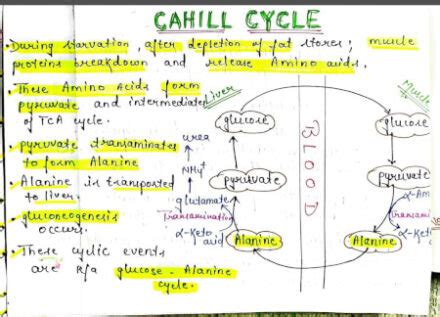 CAHILL CYCLE
• During starvation, after depletion of fat stores; muscle
proteins breakdown and release Amino acids.
• These Amino Acids form
pyruvate and intermediates
of TCA cycle.
• pyruvate transaminates
to form Alanine
• Alanine is transported
to liver.
• gluconeogenesis
occurs.
• These cyclic events
are k/a glucose - Alanine
cycle.
Liver
glucose
urea
NH4+
pyruvate
glutamate
Transamination
α-Keto
acid
Alanine
BLOOD
Muscle
glucose
pyruvate
α-Am
Transami
α-Keto
Alanine